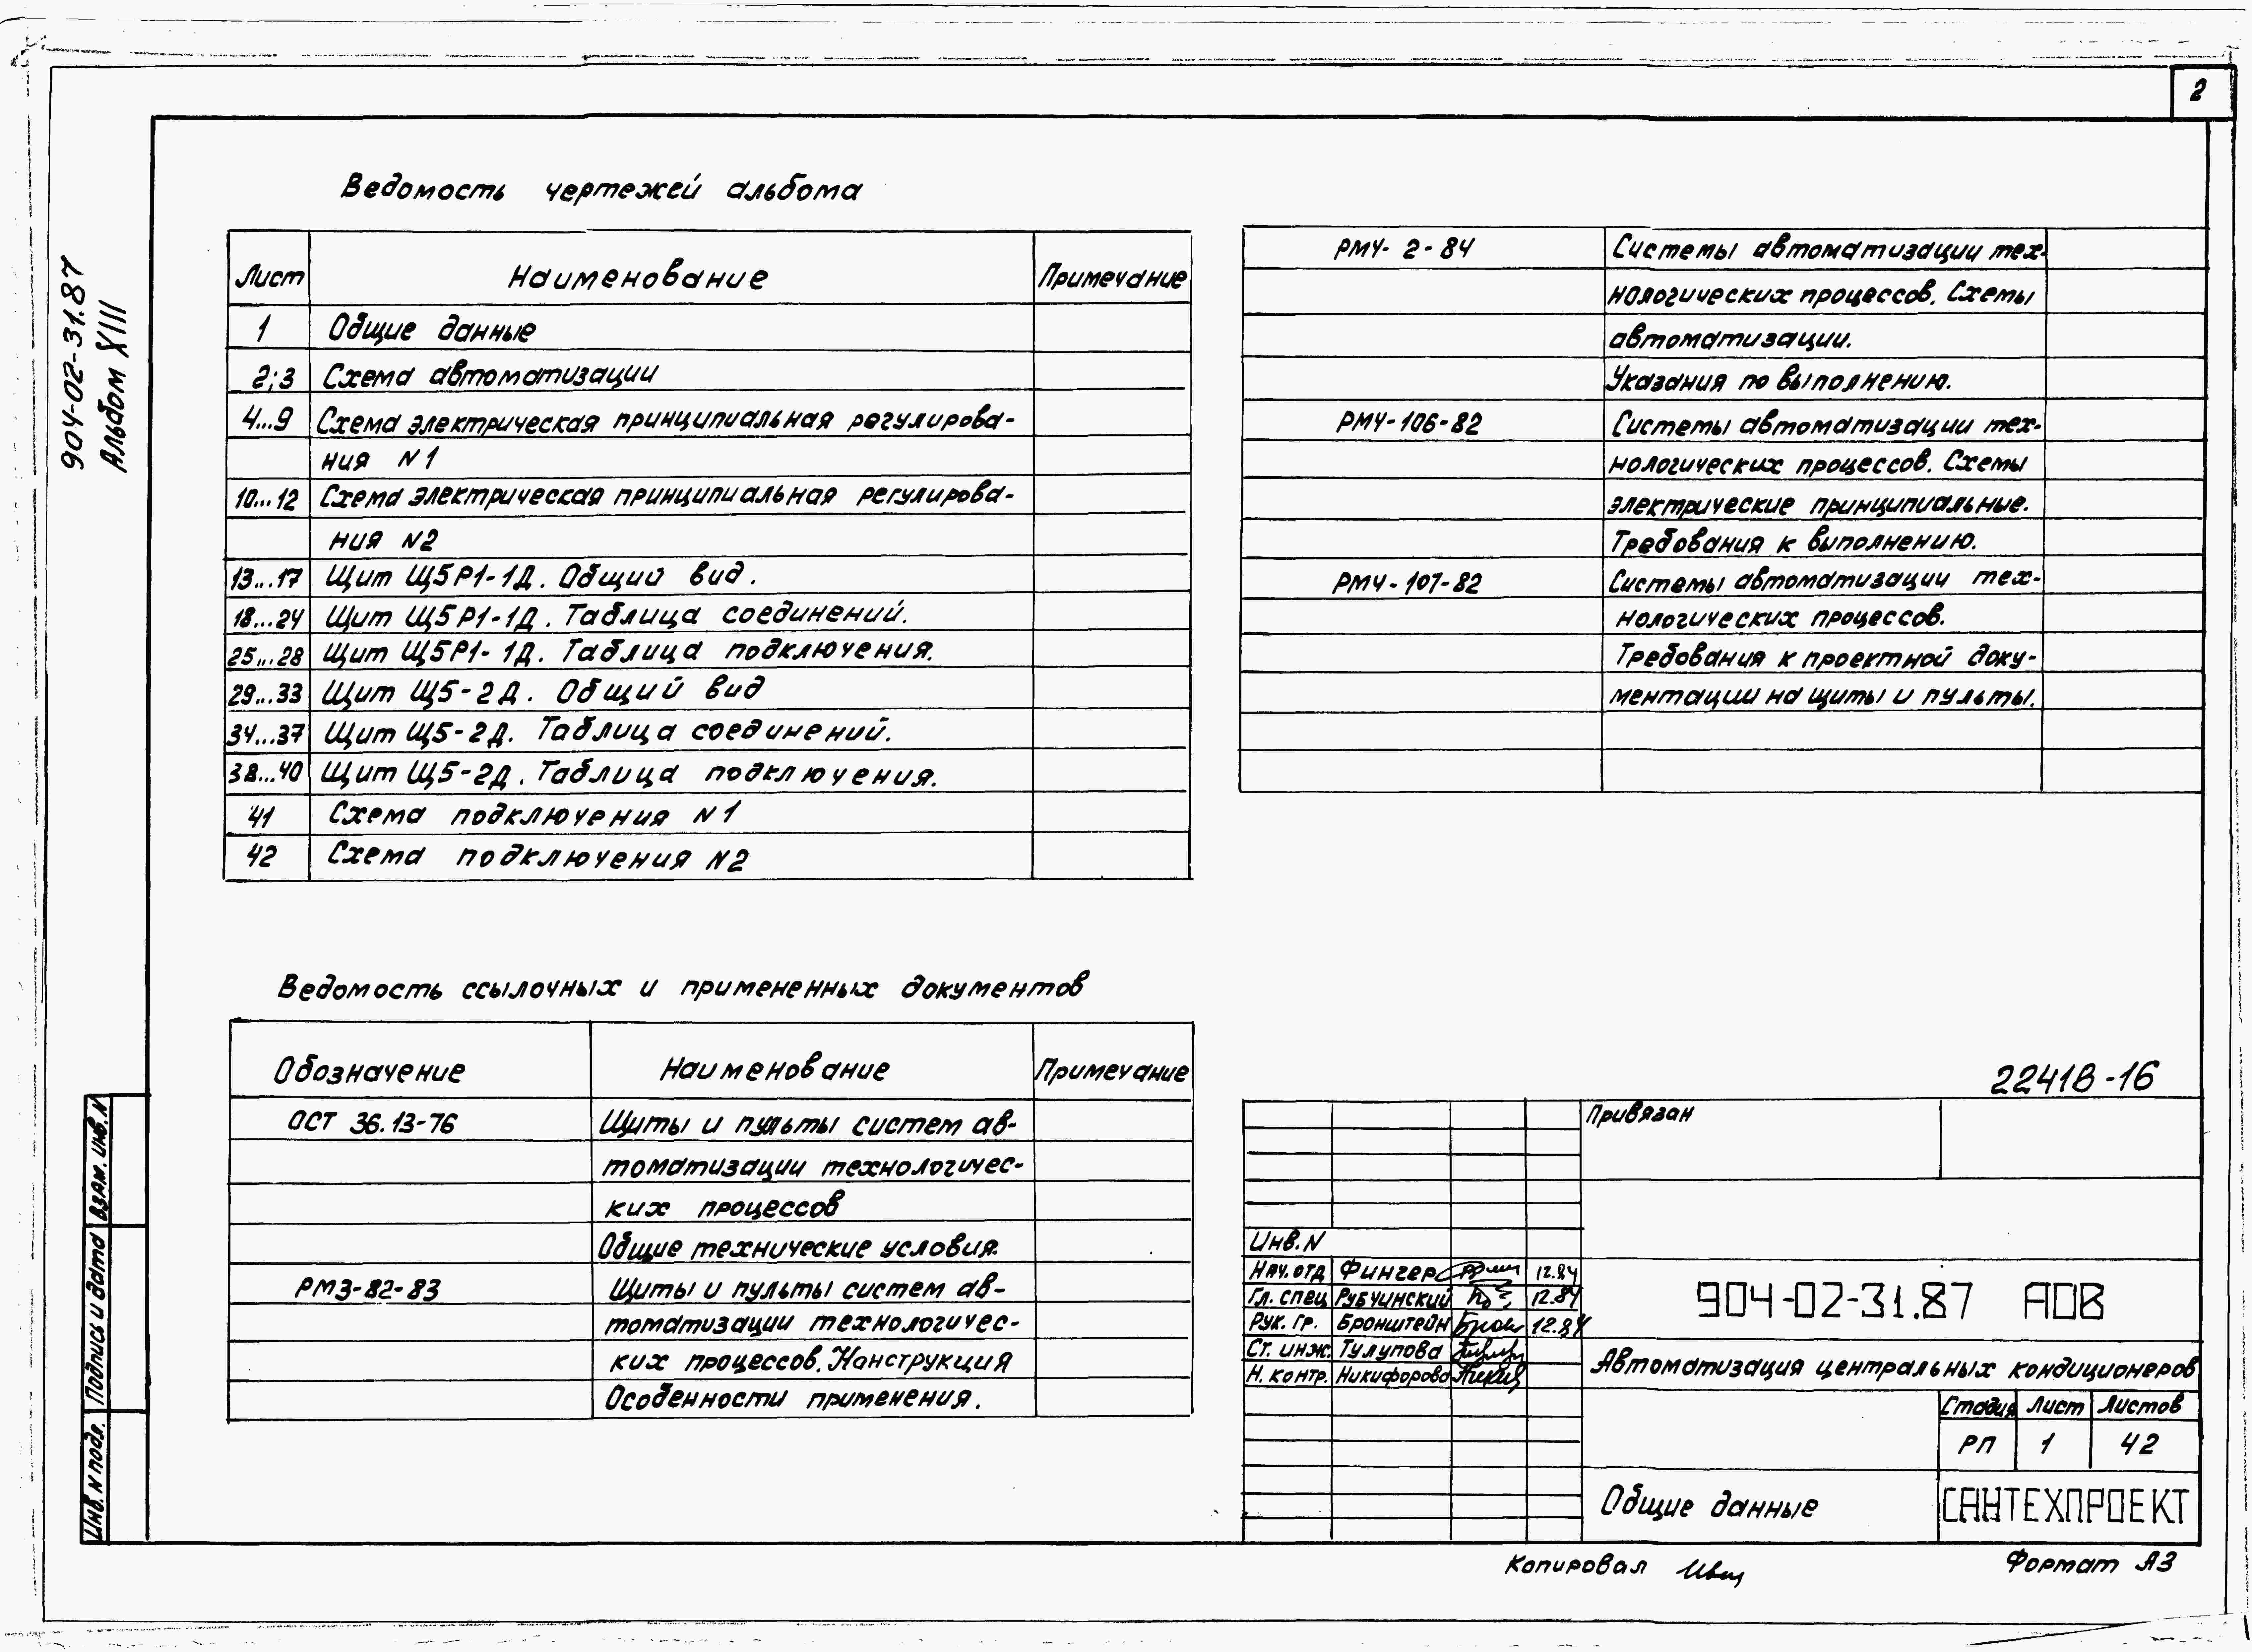 2
904-02-31.87
Альбом XIII
Ведомость чертежей альбома
Лист Наименование Примечание
1 Общие данные
2;3 Схема автоматизации
4...9 Схема электрическая принципиальная регулирова-
ния N1
10...12 Схема электрическая принципиальная регулирова-
ния N2
13...17 Щит Щ5Р1-1Д. Общий вид.
18...24 Щит Щ5Р1-1Д. Таблица соединений.
25...28 Щит Щ5Р1-1Д. Таблица подключения.
29...33 Щит Щ5-2Д. Общий вид
34...37 Щит Щ5-2Д. Таблица соединений.
38...40 Щит Щ5-2Д. Таблица подключения.
41 Схема подключения N1
42 Схема подключения N2
Ведомость ссылочных и примененных документов
Обозначение Наименование Примечание
ОСТ 36.13-76 Щиты и пульты систем ав-
томатизации технологичес-
ких процессов
Общие технические условия.
РМ3-82-83 Щиты и пульты систем ав-
томатизации технологичес-
ких процессов. Конструкция
Особенности применения.
РМ4-2-84 Системы автоматизации тех-
нологических процессов. Схемы
автоматизации.
Указания по выполнению.
РМ4-106-82 Системы автоматизации тех-
нологических процессов. Схемы
электрические принципиальные.
Требования к выполнению.
РМ4-107-82 Системы автоматизации тех-
нологических процессов.
Требования к проектной доку-
ментации на щиты и пульты.
22418-16
Привязан
Инв. N
Нач. отд Фингер 12.84
Гл. спец Рубчинский 12.84
Рук. гр. Бронштейн 12.84
Ст. инж. Тулупова
Н. контр. Никифорова
904-02-31.87 АОВ
Автоматизация центральных кондиционеров
Стадия Лист Листов
РП 1 42
Общие данные
САНТЕХПРОЕКТ
Копировал
Формат А3
Взам. инв. N
Подпись и дата
Инв. N подл.